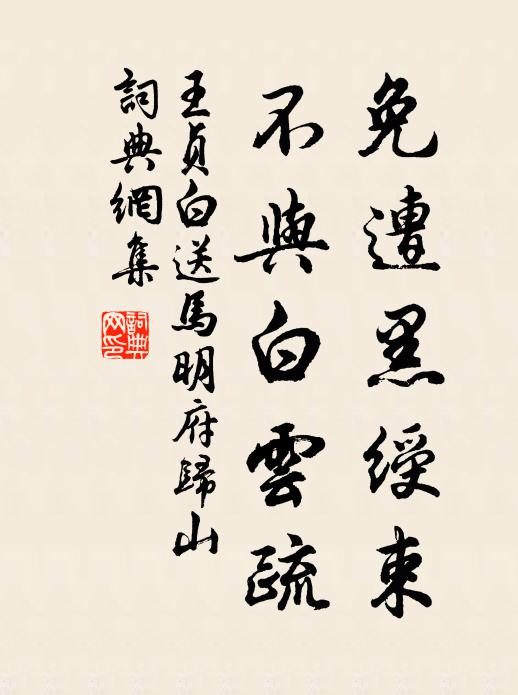 免遭黑綬束
不與白雲疏
王貞白送馬明府歸山
詞典網集
詞典
网印